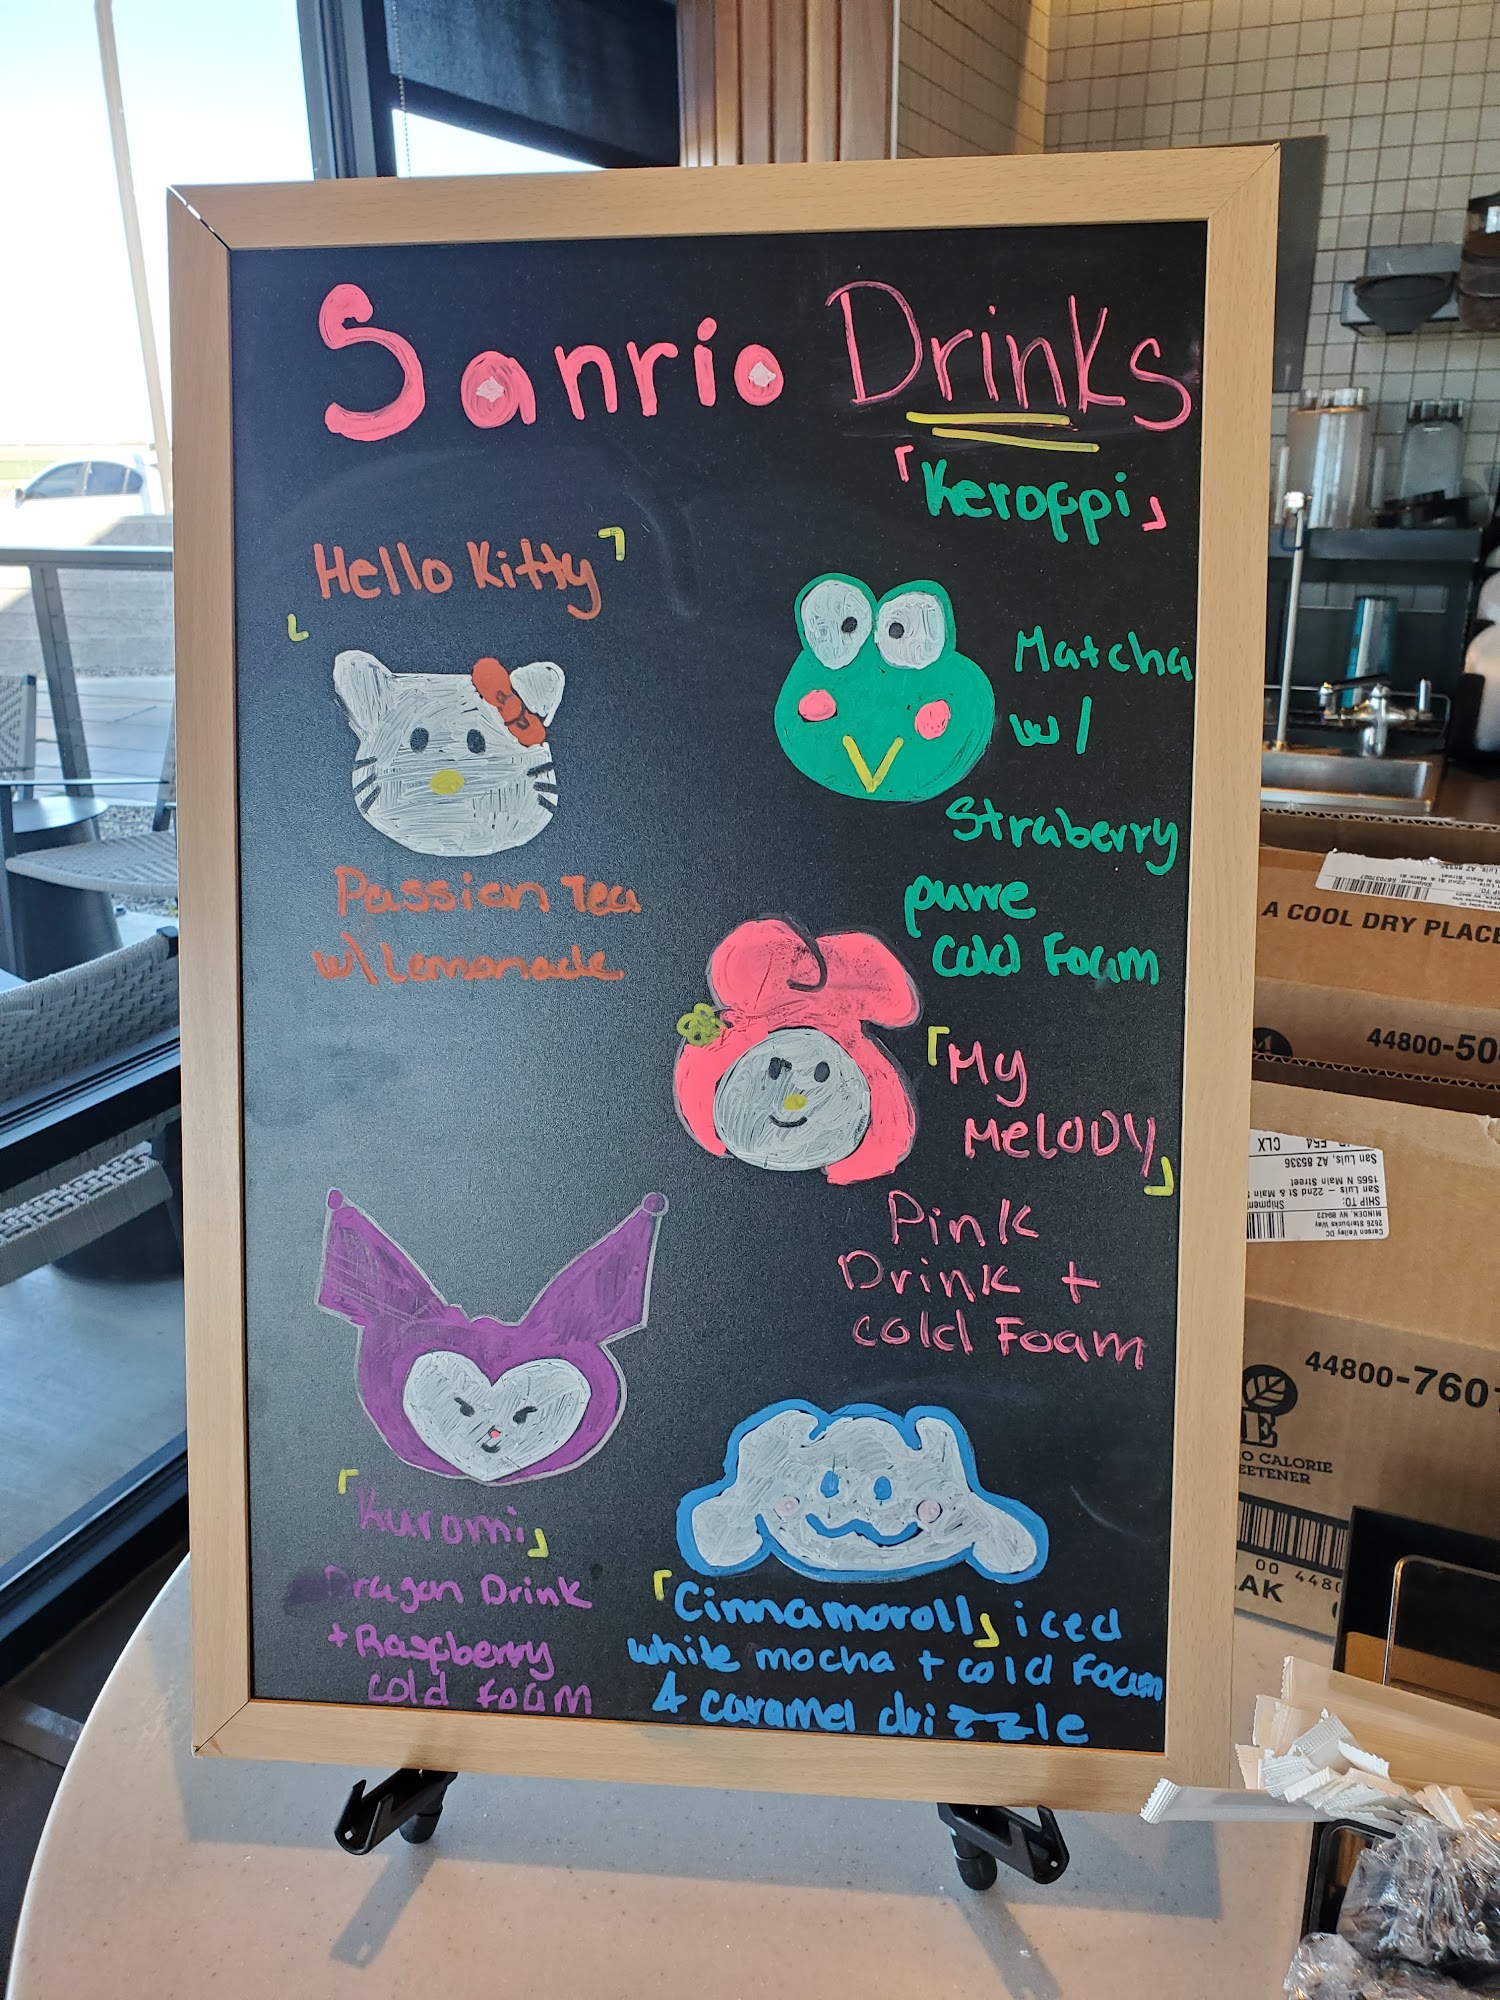 Sanrio Drinks
「Keroppi」
Hello Kitty
Matcha
w/
Straberry
puree
cold Foam
Passion Tea
w/ Lemonade
「My
Melody」
Pink
Drink +
cold Foam
「Kuromi」
Dragon Drink
+ Raspberry
cold foam
「Cinnamoroll」 iced
white mocha + cold Foam
& caramel drizzle
A COOL DRY PLACE
44800-50
44800-760
CLX
San Luis, AZ 85336
1565 N Main Street
San Luis – 22nd St & Main
SHIP TO:
MINDEN, NV 89423
2626 Starbucks Way
Carson Valley DC
O CALORIE
EETENER
00 4480
AK